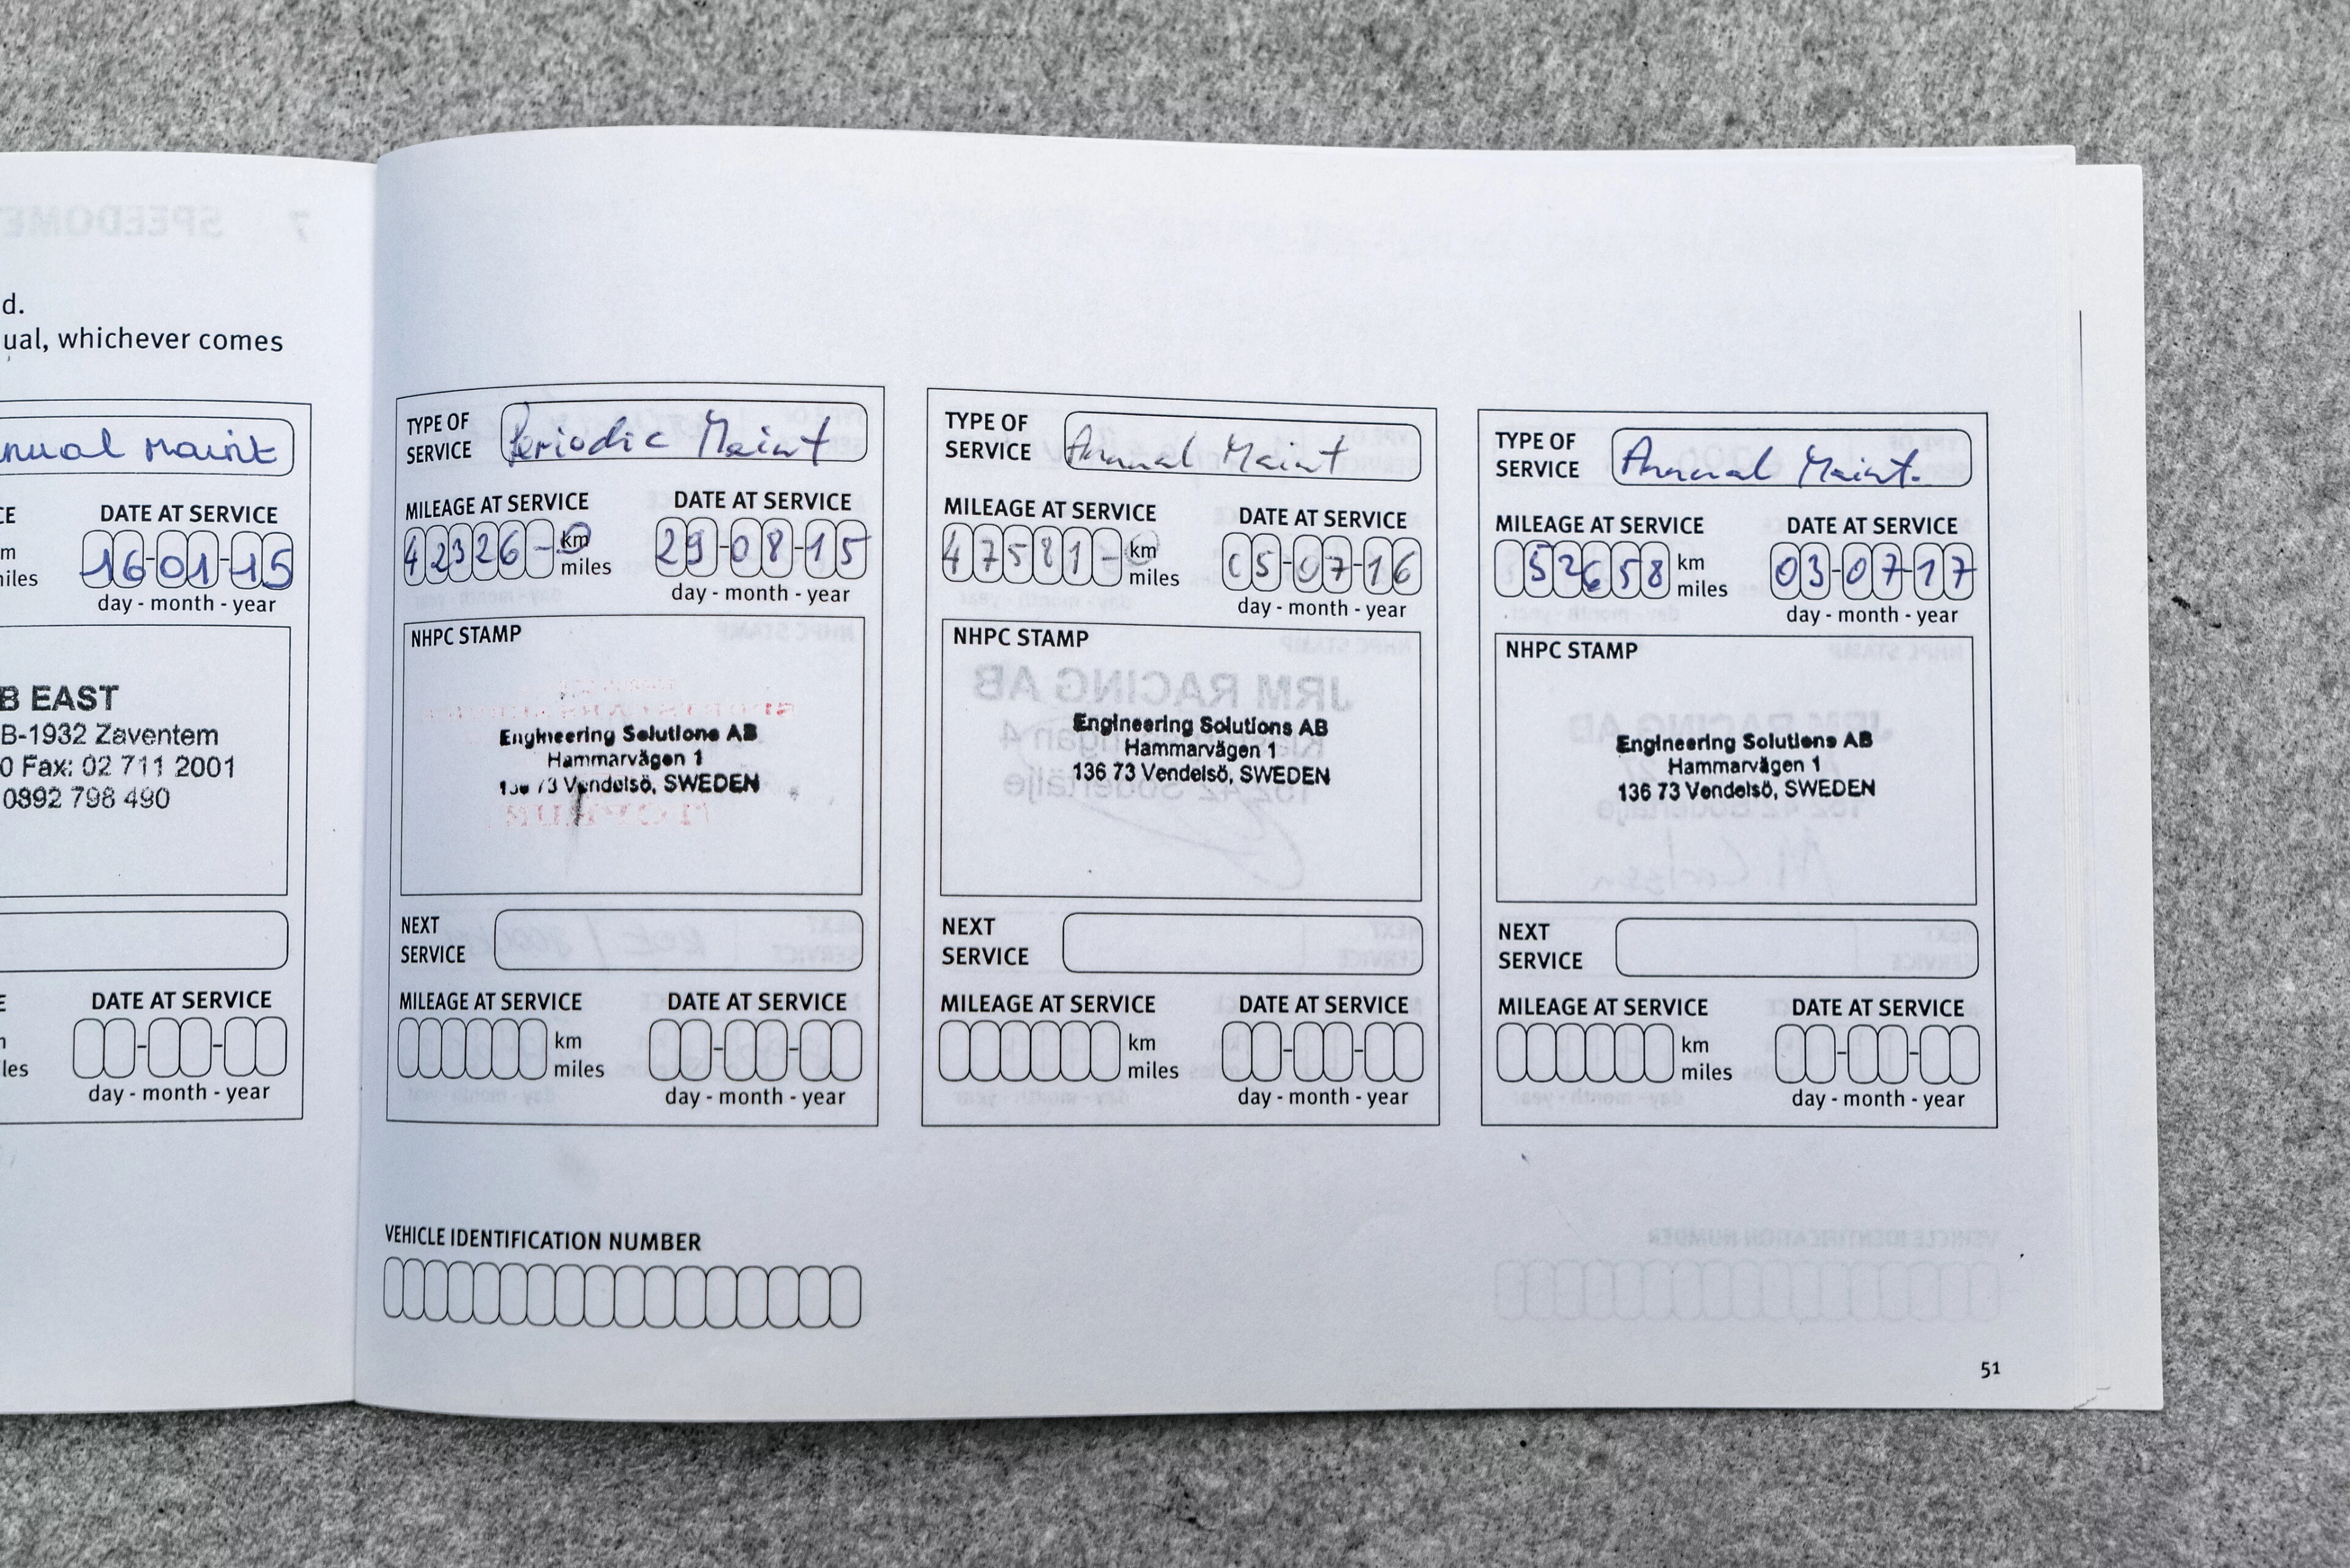 SPEEDOME
7
d.
ual, whichever comes
nual Maint
CE
DATE AT SERVICE
m
niles
16-01-15
day - month - year
B EAST
B-1932 Zaventem
0 Fax: 02 711 2001
0892 798 490
E
DATE AT SERVICE
n
les
day - month - year
TYPE OF
SERVICE
Periodic Maint
MILEAGE AT SERVICE
DATE AT SERVICE
42326-
km
miles
29-08-15
day - month - year
NHPC STAMP
Engineering Solutions AB
Hammarvägen 1
136 73 Vendelsö, SWEDEN
NEXT
SERVICE
MILEAGE AT SERVICE
DATE AT SERVICE
km
miles
day - month - year
VEHICLE IDENTIFICATION NUMBER
TYPE OF
SERVICE
Annual Maint
MILEAGE AT SERVICE
DATE AT SERVICE
47581-
km
miles
05-07-16
day - month - year
NHPC STAMP
JRM RACING AB
Engineering Solutions AB
Hammarvägen 1
136 73 Vendelsö, SWEDEN
NEXT
SERVICE
MILEAGE AT SERVICE
DATE AT SERVICE
km
miles
day - month - year
TYPE OF
SERVICE
Annual Maint.
MILEAGE AT SERVICE
DATE AT SERVICE
52658
km
miles
03-07-17
day - month - year
NHPC STAMP
JRM RACING AB
Engineering Solutions AB
Hammarvägen 1
136 73 Vendelsö, SWEDEN
NEXT
SERVICE
MILEAGE AT SERVICE
DATE AT SERVICE
km
miles
day - month - year
VEHICLE IDENTIFICATION NUMBER
51